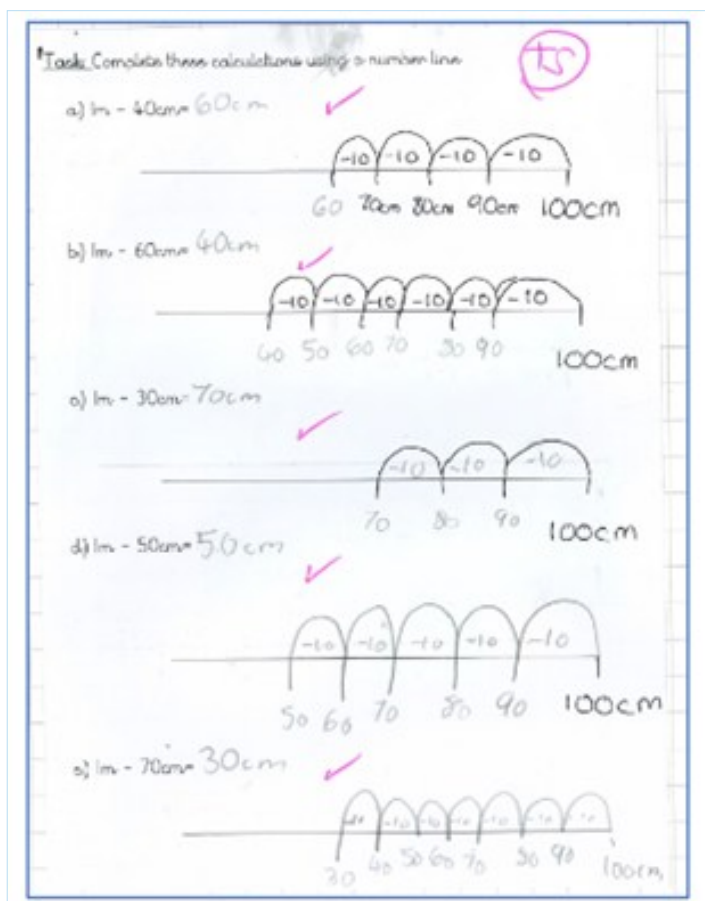 Task: Complete these calculations using a number line
TS
a) 1m - 40cm= 60cm
-10 -10 -10 -10
60 70cm 80cm 90cm 100cm
b) 1m - 60cm= 40cm
-10 -10 -10 -10 -10 -10
40 50 60 70 80 90 100cm
c) 1m - 30cm= 70cm
-10 -10 -10
70 80 90 100cm
d) 1m - 50cm= 50cm
-10 -10 -10 -10 -10
50 60 70 80 90 100cm
e) 1m - 70cm= 30cm
-10 -10 -10 -10 -10 -10 -10
30 40 50 60 70 80 90 100cm